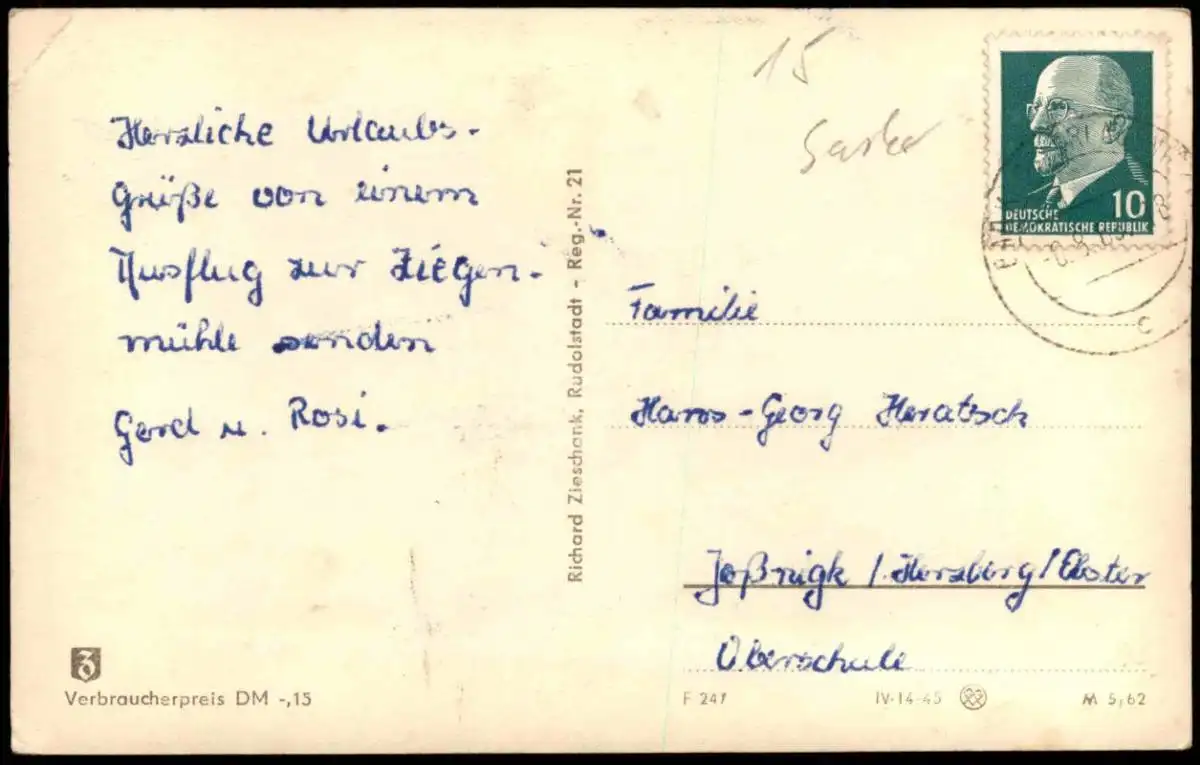 Herzliche Urlaubs-
Grüße von einem
Ausflug zur Ziegen-
mühle senden
Gerd u. Rosi.
Verbraucherpreis DM -,15
Richard Zieschank, Rudolstadt - Reg.-Nr. 21
15
10
DEUTSCHE
DEMOKRATISCHE REPUBLIK
C
Familie
Hans-Georg Heratsch
Joßnigk / Herzberg / Elster
Oberschule
F 247 IV-14-45 M 5,62